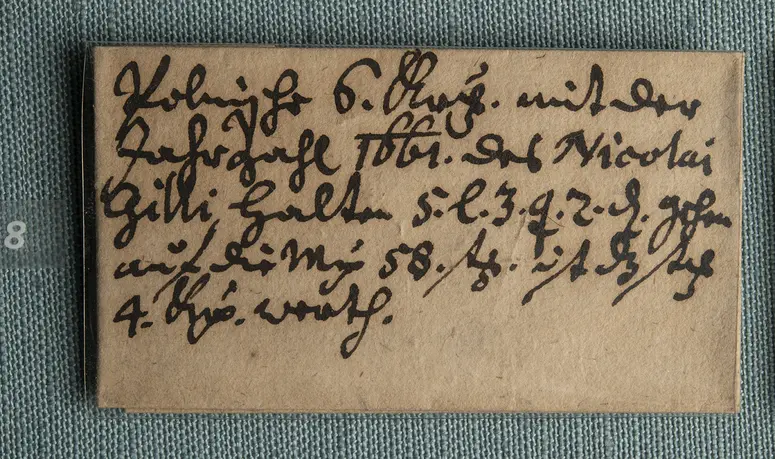 Polnische 6. Krz. mit der
Jahrzahl 1661. des Nicolai
Gilli halten 5. l. 3. q. 2. d. gehen
auf die Mrg 58. stg. ist dz stg
4. Krz. werth.
8